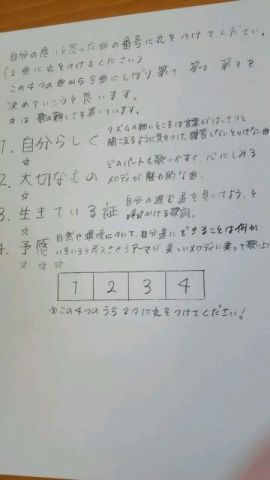 自分の良いと思った曲の番号に丸をつけてください。
(2曲に丸をつけてください)
この4つの曲から3曲にしぼり第1 第2 第3を
決めていこうと思います。
☆は歌の難しさを表しています。
1. 自分らしく リズムの細いところは言葉がはっきりと
聞こえるように気をつけ、練習しないといけない曲
☆
どのパートも歌いやすく、心にしみる
2. 大切なもの メロディが魅力的な曲。
☆
3. 生きている証 自分の進む道を見つけよう、と
呼びかける歌詞。
☆
4. 予感 自然や環境について、自分達にできることは何か
いろいろと考えさせるテーマが、美しいメロディに乗って歌い上
☆ ☆ ☆
1 2 3 4
※この4つのうち2つに丸をつけてください!